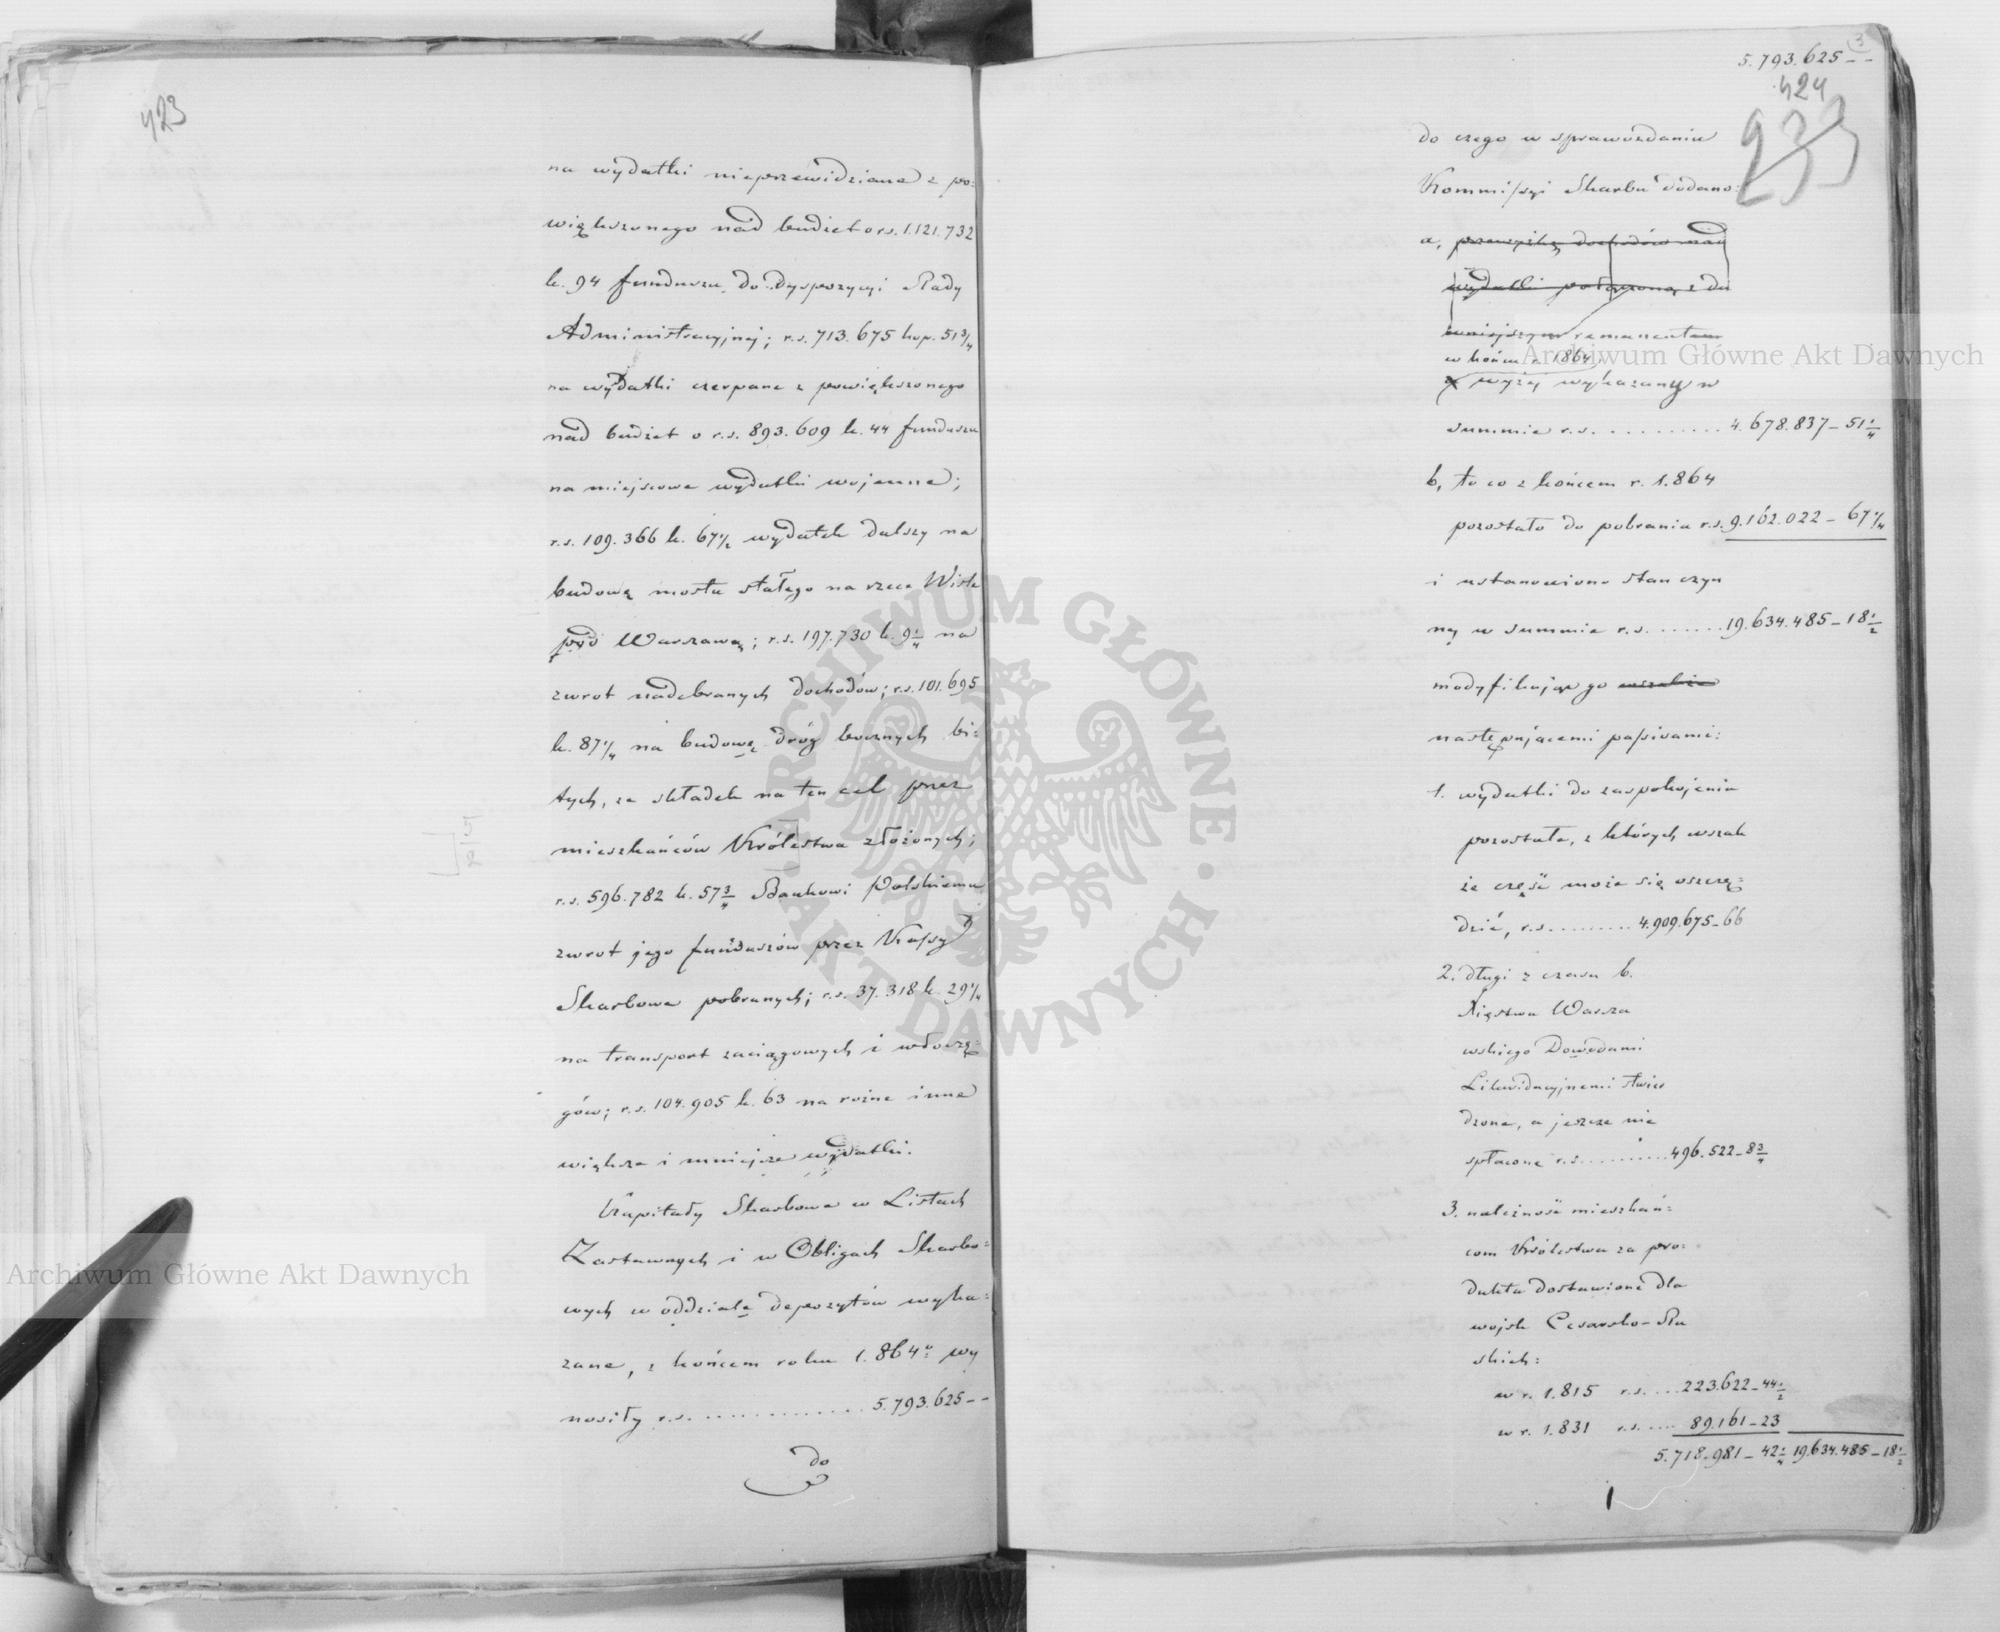 423
na wydatki nieprzewidziane z po=
większonego nad budżet o rs. 1.121.732
k. 94 funduszu do dyspozycyi Rady
Administracyjnej; r.s. 713.675 kop. 51 3/4
na wydatki czerpane z powiększonego
nad budżet o r.s. 893.609 k. 44 funduszu
na miejscowe wydatki wojenne;
r.s. 109.366 k. 67 1/2 wydatek dalszy na
budowę mostu stałego na rzece Wiśle
pod Warszawą; r.s. 197.730 k. 9 1/4 na
zwrot nadebranych dochodów; r.s. 101.695
k. 87 1/4 na budowę dróg bocznych bi=
tych, ze składek na ten cel przez
mieszkańców Królestwa złożonych;
r.s. 596.782 k. 57 3/4 Bankowi Polskiemu
zwrot jego funduszów przez Kassy
Skarbowe pobranych; r.s. 37.318 k. 29 1/4
na transport zaciągowych i włóczę=
gów; r.s. 104.905 k. 63 na rożne inne
większe i mniejsze wydatki.
Kapitały Skarbowe w Listach
Zastawnych i w Obligach Skarbo=
wych w oddziale depozytów wyka=
zane, z końcem roku 1.864 wy
nosiły r.s. .............. 5.793.625 - -
do
3
5.793.625 - -
424
233
do czego w sprawozdaniu
Kommissyi Skarbu dodano:
a, przewyżkę dochodów nad
wydatki połączoną z du
remanentem
w końcu r. 1864
wyżej wykazany w
summie r.s. .......... 4.678.837 - 51 1/4
b, to co z końcem r. 1.864
pozostało do pobrania r.s. 9.162.022 - 67 1/4
i ustanowiono stan czyn
ny w summie r.s. ....... 19.634.485 - 18 1/2
modyfikując go wszakże
następującemi passivami:
1. wydatki do zaspokojenia
pozostałe, z których wszak
że część może się oszczę=
dzić, r.s. ......... 4.909.675 - 66
2. długi z czasu b.
Xięstwa Warsza
wskiego Dowodami
Likwidacyjnemi stwier
dzone, a jeszcze nie
spłacone r.s. .......... 496.522 - 8 3/4
3. należność mieszkań=
com Królestwa za pro=
dukta dostawione dla
wojsk Cesarsko-Ru
skich:
w r. 1.815 r.s. .... 223.622 - 44 1/2
w r. 1.831 r.s. .... 89.161 - 23
5.718.981 - 42 1/4 19.634.485 - 18 1/2
Archiwum Główne Akt Dawnych
Archiwum Główne Akt Dawnych
ARCHIWUM GŁÓWNE · AKT DAWNYCH ·